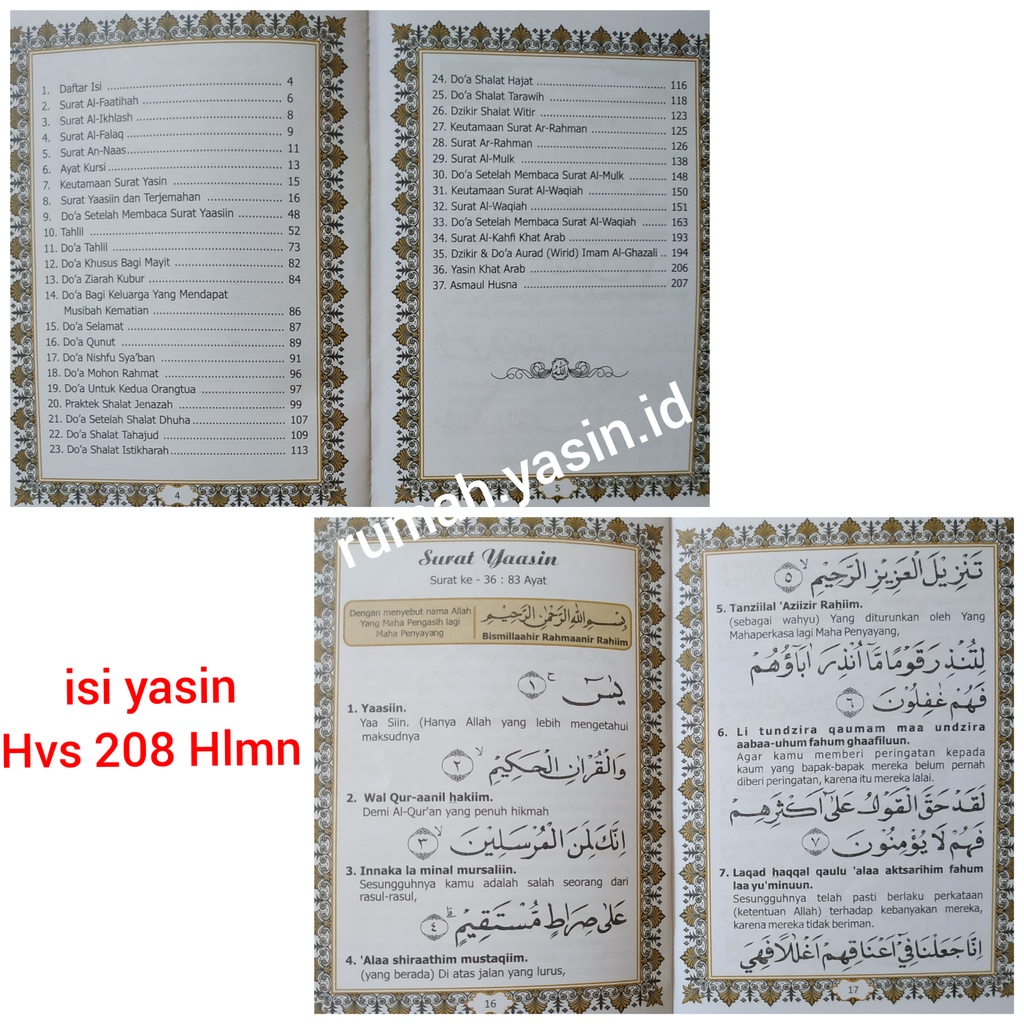 1. Daftar Isi ........ 4
2. Surat Al-Faatihah ........ 6
3. Surat Al-Ikhlash ........ 8
4. Surat Al-Falaq ........ 9
5. Surat An-Naas ........ 11
6. Ayat Kursi ........ 13
7. Keutamaan Surat Yasin ........ 15
8. Surat Yaasiin dan Terjemahan ........ 16
9. Do'a Setelah Membaca Surat Yaasiin ........ 48
10. Tahlil ........ 52
11. Do'a Tahlil ........ 73
12. Do'a Khusus Bagi Mayit ........ 82
13. Do'a Ziarah Kubur ........ 84
14. Do'a Bagi Keluarga Yang Mendapat
Musibah Kematian ........ 86
15. Do'a Selamat ........ 87
16. Do'a Qunut ........ 89
17. Do'a Nishfu Sya'ban ........ 91
18. Do'a Mohon Rahmat ........ 96
19. Do'a Untuk Kedua Orangtua ........ 97
20. Praktek Shalat Jenazah ........ 99
21. Do'a Setelah Shalat Dhuha ........ 107
22. Do'a Shalat Tahajud ........ 109
23. Do'a Shalat Istikharah ........ 113
4
24. Do'a Shalat Hajat ........ 116
25. Do'a Shalat Tarawih ........ 118
26. Dzikir Shalat Witir ........ 123
27. Keutamaan Surat Ar-Rahman ........ 125
28. Surat Ar-Rahman ........ 126
29. Surat Al-Mulk ........ 138
30. Do'a Setelah Membaca Surat Al-Mulk ........ 148
31. Keutamaan Surat Al-Waqiah ........ 150
32. Surat Al-Waqiah ........ 151
33. Do'a Setelah Membaca Surat Al-Waqiah ........ 163
34. Surat Al-Kahfi Khat Arab ........ 193
35. Dzikir & Do'a Aurad (Wirid) Imam Al-Ghazali .. 194
36. Yasin Khat Arab ........ 206
37. Asmaul Husna ........ 207
الله
5
rumah.yasin.id
isi yasin
Hvs 208 Hlmn
Surat Yaasin
Surat ke - 36 : 83 Ayat
Dengan menyebut nama Allah
Yang Maha Pengasih lagi
Maha Penyayang
بِسْمِ اللهِ الرَّحْمٰنِ الرَّحِيْمِ
Bismillaahir Rahmaanir Rahiim
يٰسۤ ۚ ١
1. Yaasiin.
Yaa Siin. (Hanya Allah yang lebih mengetahui
maksudnya
وَالْقُرْاٰنِ الْحَكِيْمِ ۙ ٢
2. Wal Qur-aanil hakiim.
Demi Al-Qur'an yang penuh hikmah
اِنَّكَ لَمِنَ الْمُرْسَلِيْنَ ۙ ٣
3. Innaka la minal mursaliin.
Sesungguhnya kamu adalah salah seorang dari
rasul-rasul,
عَلٰى صِرَاطٍ مُّسْتَقِيْمٍ ۗ ٤
4. 'Alaa shiraathim mustaqiim.
(yang berada) Di atas jalan yang lurus,
16
تَنْزِيْلَ الْعَزِيْزِ الرَّحِيْمِ ۙ ٥
5. Tanziilal 'Aziizir Rahiim.
(sebagai wahyu) Yang diturunkan oleh Yang
Mahaperkasa lagi Maha Penyayang,
لِتُنْذِرَ قَوْمًا مَّآ اُنْذِرَ اٰبَاۤؤُهُمْ
فَهُمْ غٰفِلُوْنَ ٦
6. Li tundzira qaumam maa undzira
aabaa-uhum fahum ghaafiluun.
Agar kamu memberi peringatan kepada
kaum yang bapak-bapak mereka belum pernah
diberi peringatan, karena itu mereka lalai.
لَقَدْ حَقَّ الْقَوْلُ عَلٰٓى اَكْثَرِهِمْ
فَهُمْ لَا يُؤْمِنُوْنَ ٧
7. Laqad haqqal qaulu 'alaa aktsarihim fahum
laa yu'minuun.
Sesungguhnya telah pasti berlaku perkataan
(ketentuan Allah) terhadap kebanyakan mereka,
karena mereka tidak beriman.
اِنَّا جَعَلْنَا فِيْٓ اَعْنَاقِهِمْ اَغْلٰلًا فَهِيَ
17